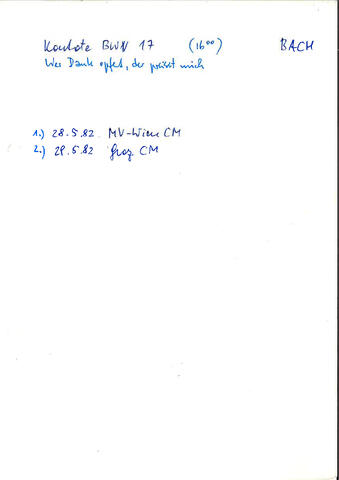 Kantate BWV 17 (16⁰⁰) BACH
Wer Dank opfert, der preist mich
1.) 28.5.82 MV-Wien CM
2.) 29.5.82 Graz CM